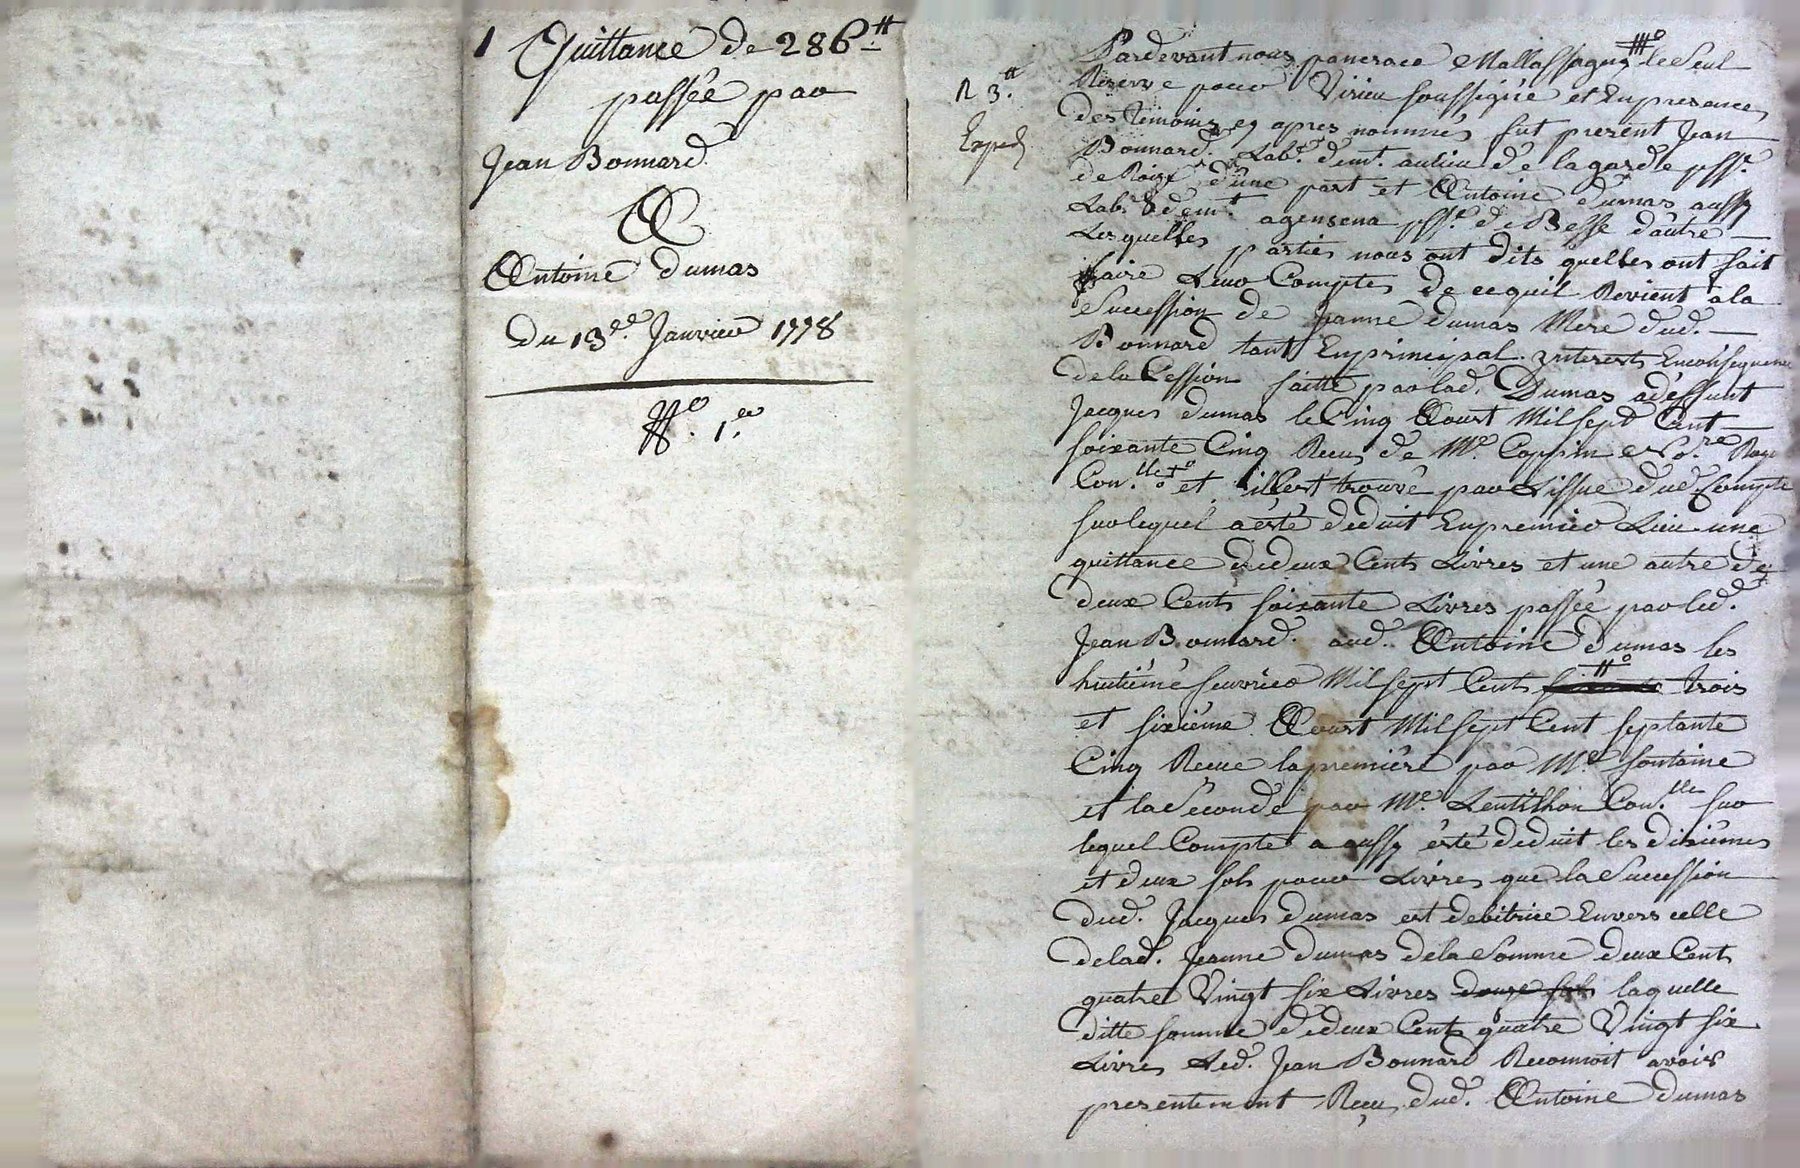 1 Quittance de 286 ₶
passée par
Jean Bonnard
A
Antoine dumas
Du 13.e Janvier 1778
N.o 1.er
R 3.₶
Exped
Pardevant nous pancrace Mallassagny No.re le Seul
Reserve pour Virieu soussigné et En presance
des Temoins cy apres nommés fut present Jean
Bonnard Lab.r dem.t au lieu de la garde pss.e
de Roizey d'une part et Antoine dumas aussy
Lab.r & dem.t a pss.e de Besse d'autre
Lesquelles parties nous ont dits quelles ont fait
faire Leur Comptes de ce quil Revient a la
Succession de Jeanne dumas Mere dud.
Bonnard tant En principal Interests En consequence
de la Cession faitte par lad. Dumas a deffunt
Jacques dumas le Cinq Aoust Mil sept Cent
soixante Cinq Receu de M.e Coppin No.re Roy
Con.lle et il s'est trouvé par L'issue dud. Compte
sur lequel a été deduit En premier Lieu une
quittance de deux Cents Livres et une autre de
deux Cents soixante Livres passée par led.
Jean Bonnard aud. Antoine dumas les
huitiéme fevrier Mil sept Cents trois
et sixiéme Aoust Mil sept Cent septante
Cinq Receue la premiére par M.e fontaine
et la Seconde par M.e Lentillon Con.lle sur
lequel Compte a aussy été deduit les dixiémes
et deux sols pour Livres que la Succession
dud. Jacques dumas est debitrice Envers celle
de lad. Jeanne dumas de la Somme deux Cent
quatre Vingt six Livres douze sols laquelle
ditte somme de deux Cents quatre Vingt six
Livres Led. Jean Bonnard Reconnoit avoir
presentement Receu dud. Antoine dumas